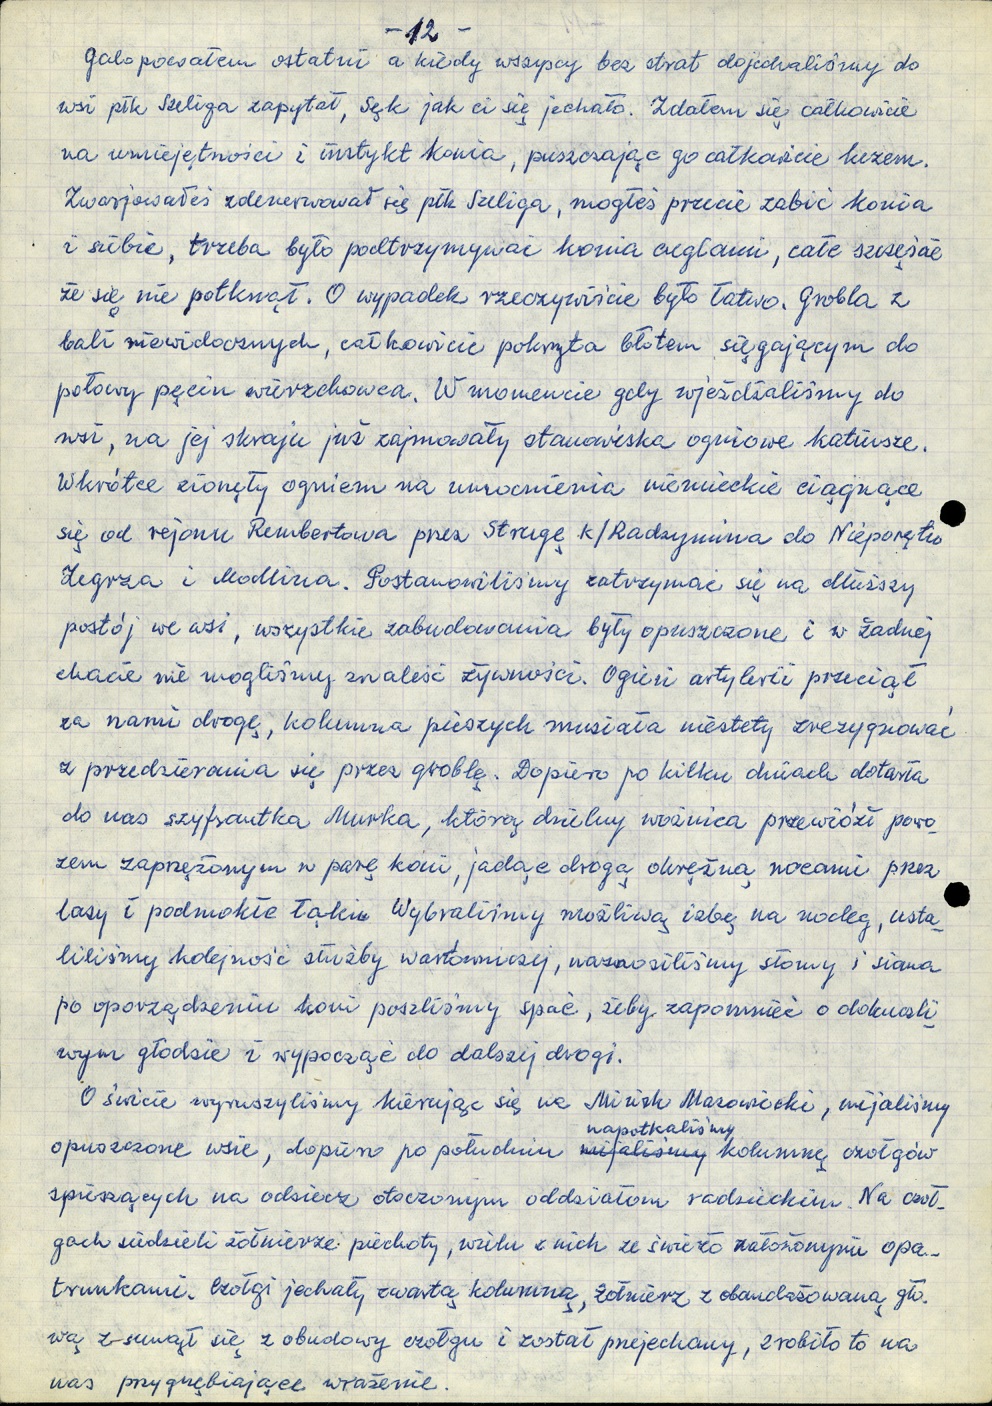 - 12 -
Galopowałem ostatni a kiedy wszyscy bez strat dojechaliśmy do
wsi płk Szeliga zapytał, Sęk jak ci się jechało. Zdałem się całkowicie
na umiejętności i instykt konia, puszczając go całkowicie luzem.
Zwarjowałeś zdenerwował się płk Szeliga, mogłeś przecie zabić konia
i siebie, trzeba było podtrzymywać konia cuglami, całe szczęście
że się nie potknął. O wypadek rzeczywiście było łatwo. Grobla z
bali niewidocznych, całkowicie pokryta błotem sięgającym do
połowy pęcin wierzchowca. W momencie gdy wjeżdżaliśmy do
wsi, na jej skraju już zajmowały stanowiska ogniowe katiusze.
Wkrótce zionęły ogniem na umocnienia niemieckie ciągnące
się od rejonu Rembertowa przez Strugę k/Radzymina do Nieporętu
Zegrza i Modlina. Postanowiliśmy zatrzymać się na dłuższy
postój we wsi, wszystkie zabudowania były opuszczone i w żadnej
chacie nie mogliśmy znaleść żywności. Ogień artylerii przeciął
za nami drogę, kolumna pieszych musiała niestety zrezygnować
z przedzierania się przez groblę. Dopiero po kilku dniach dotarła
do nas szyfrantka Murka, którą dzielny woźnica przewiózł powo-
zem zaprzężonym w parę koni, jadąc drogą okrężną nocami przez
lasy i podmokłe łąki. Wybraliśmy możliwą izbę na nocleg, usta-
liliśmy kolejność służby wartowniczej, naznosiliśmy słomy i siana
po oporządzeniu koni poszliśmy spać, żeby zapomnieć o dokuczli-
wym głodzie i wypocząć do dalszej drogi.
O świcie wyruszyliśmy kierując się na Mińsk Mazowiecki, mijaliśmy
napotkaliśmy
opuszczone wsie, dopiero po południu mijaliśmy kolumnę czołgów
spieszących na odsiecz otoczonym oddziałom radzieckim. Na czoł-
gach siedzieli żołnierze piechoty, wielu z nich ze świeżo założonymi opa-
trunkami. Czołgi jechały zwartą kolumną, żołnierz z obandażowaną gło-
wą zsunął się z obudowy czołgu i został przejechany, zrobiło to na
nas przygnębiające wrażenie.